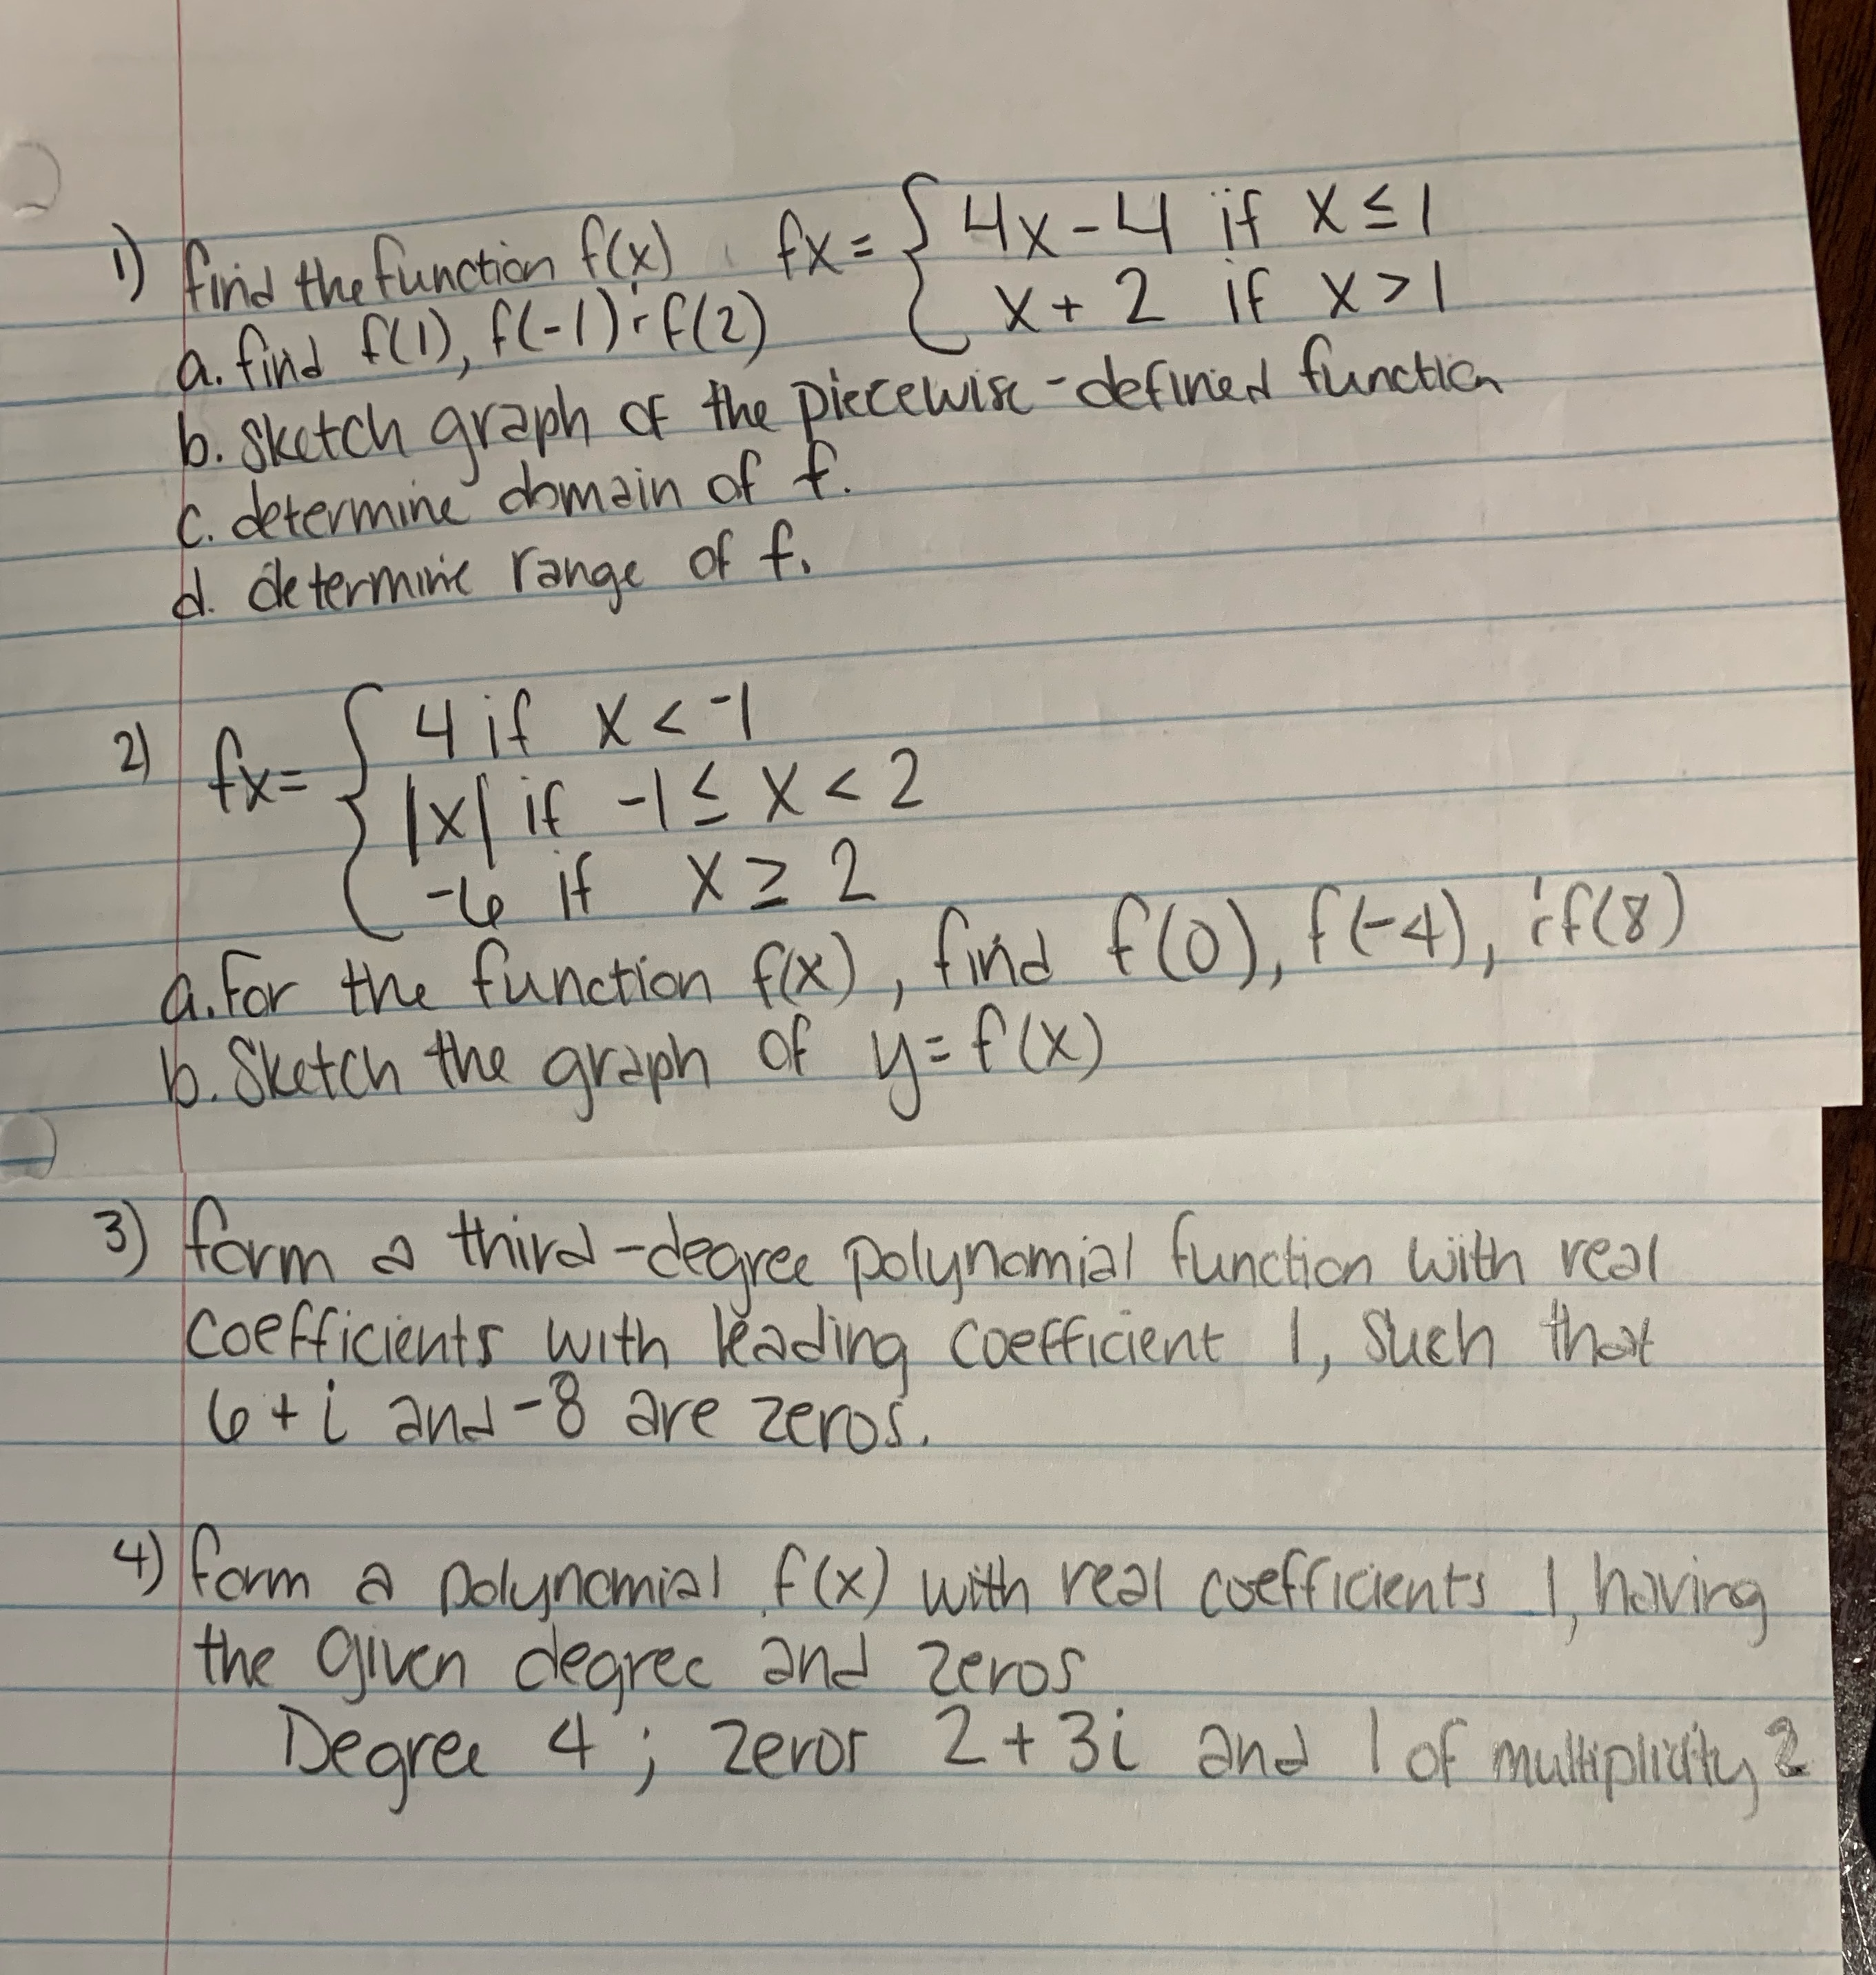 1) find the function f(x) fx = { 4x - 4 if x ≤ 1
x + 2 if x > 1
a. find f(1), f(-1) & f(2)
b. sketch graph of the piecewise-defined function
c. determine domain of f.
d. determine range of f.
2) fx = { 4 if x < -1
|x| if -1 ≤ x < 2
-6 if x ≥ 2
a. For the function f(x), find f(0), f(-4), & f(8)
b. Sketch the graph of y = f(x)
3) form a third-degree polynomial function with real
coefficients with leading coefficient 1, such that
6 + i and -8 are zeros.
4) form a polynomial f(x) with real coefficients 1, having
the given degree and zeros
Degree 4 ; zeros 2 + 3i and 1 of multiplicity 2